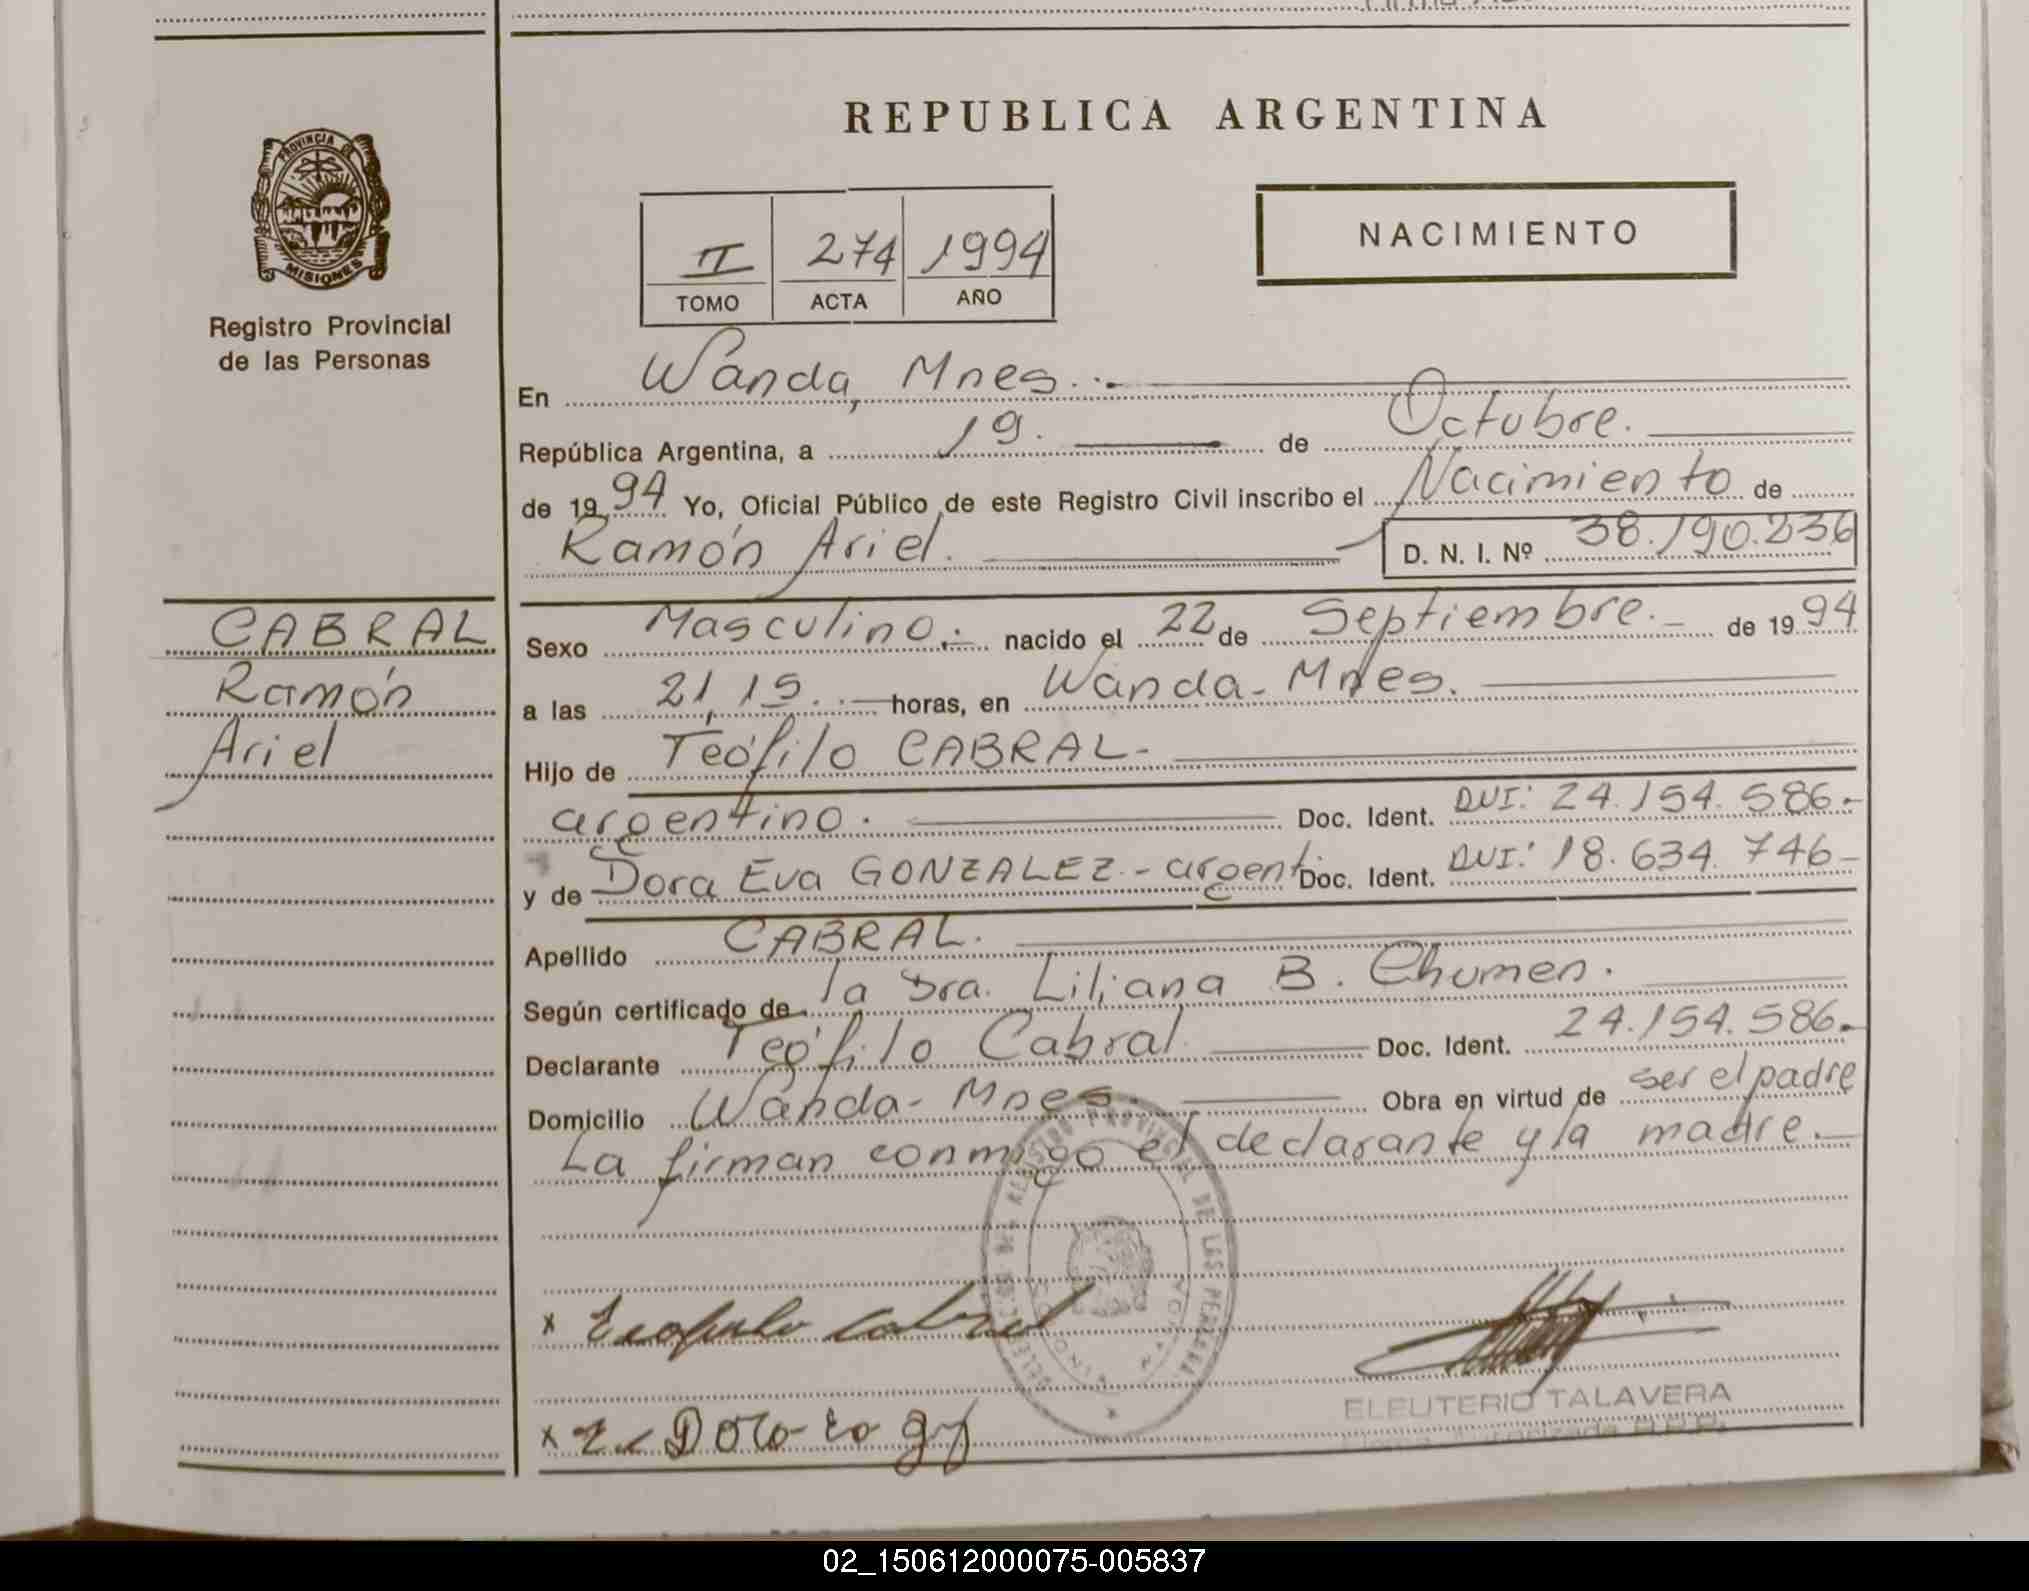 REPUBLICA ARGENTINA
PROVINCIA DE
MISIONES
Registro Provincial
de las Personas
II 274 1994
TOMO ACTA AÑO
NACIMIENTO
En Wanda, Mnes.
República Argentina, a 19. de Octubre.
de 1994 Yo, Oficial Público de este Registro Civil inscribo el Nacimiento de
Ramón Ariel. D. N. I. Nº 38.190.236
CABRAL
Ramón
Ariel
Sexo Masculino.- nacido el 22 de Septiembre.- de 1994
a las 21,15. horas, en Wanda- Mnes.
Hijo de Teófilo CABRAL-
argentino. Doc. Ident. DUI: 24.154.586.-
y de Dora Eva GONZALEZ.- argenti Doc. Ident. DUI: 18.634.746-
Apellido CABRAL.
Según certificado de la Dra. Liliana B. Chumen.
Declarante Teófilo Cabral Doc. Ident. 24.154.586.-
Domicilio Wanda- Mnes. Obra en virtud de ser el padre
La firman conmigo el declarante y la madre.-
REGISTRO PROVINCIAL DE LAS PERSONAS
x Teofilo cabral
ELEUTERIO TALAVERA
x
02_150612000075-005837